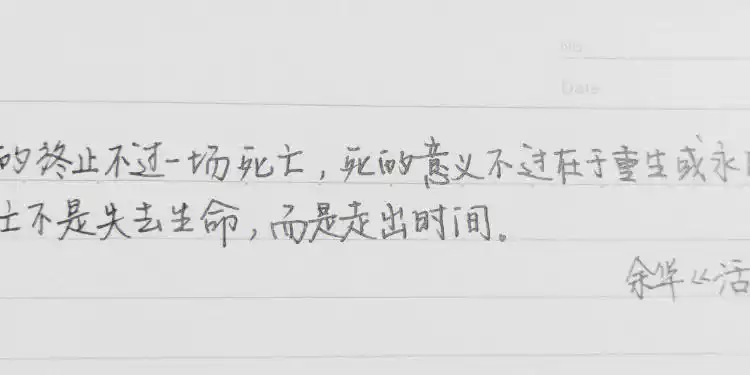 No.
Date
的终止不过一场死亡，死的意义不过在于重生或永
不是失去生命，而是走出时间。
余华《活